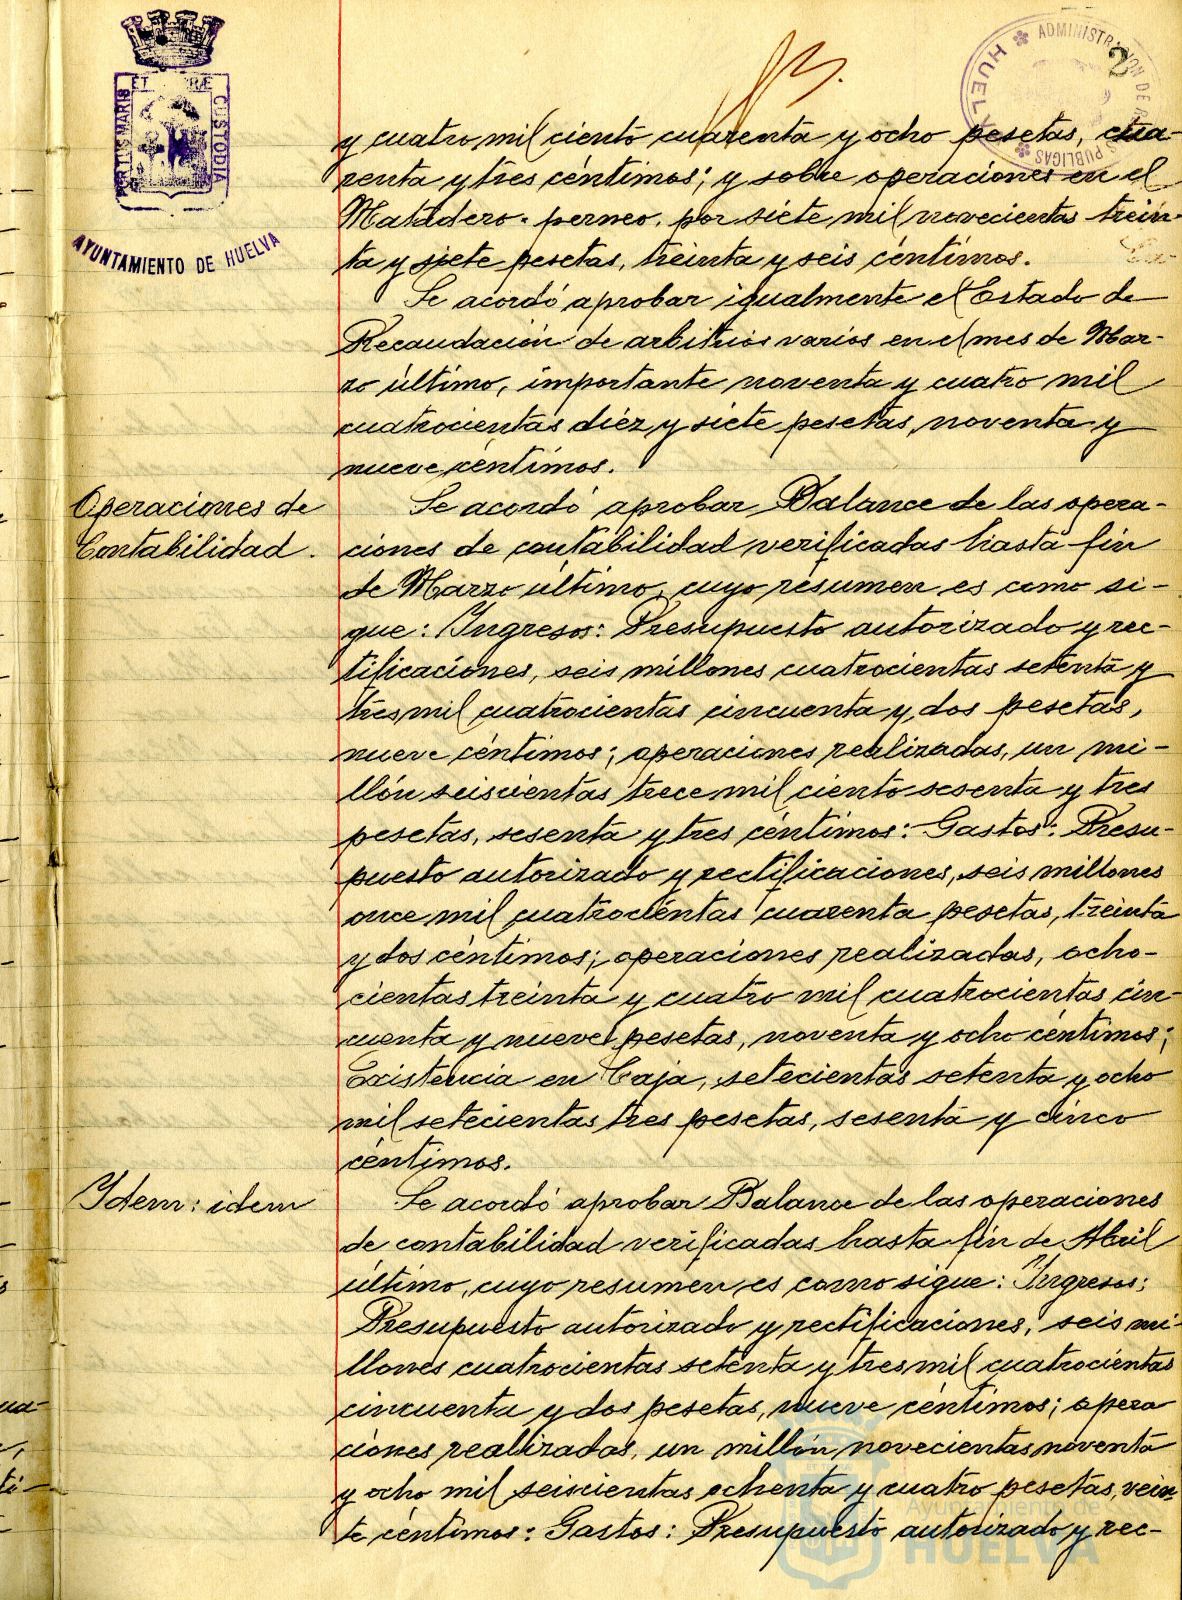 2
ADMINISTRACIÓN DE
PUBLICAS
HUELVA
PORTUS MARIS ET TERRÆ CUSTODIA
AYUNTAMIENTO DE HUELVA
y cuatro mil ciento cuarenta y ocho pesetas, cua-
renta y tres céntimos; y sobre operaciones en el
Matadero-perneo, por siete mil novecientas trein-
ta y siete pesetas, treinta y seis céntimos.
Se acordó aprobar igualmente el Estado de
Recaudación de arbitrios varios en el mes de Mar-
zo último, importante noventa y cuatro mil
cuatrocientas diéz y siete pesetas, noventa y
nueve céntimos.
Operaciones de
Contabilidad.
Se acordó aprobar Balance de las opera-
ciones de contabilidad verificadas hasta fin
de Marzo último, cuyo resumen es como si-
gue: Ingresos: Presupuesto autorizado y rec-
tificaciones, seis millones cuatrocientas setenta y
tres mil cuatrocientas cincuenta y dos pesetas,
nueve céntimos; operaciones realizadas, un mi-
llón seiscientas trece mil ciento sesenta y tres
pesetas, sesenta y tres céntimos: Gastos: Presu-
puesto autorizado y rectificaciones, seis millones
once mil cuatrocientas cuarenta pesetas, treinta
y dos céntimos; operaciones realizadas, ocho-
cientas treinta y cuatro mil cuatrocientas cin-
cuenta y nueve pesetas, noventa y ocho céntimos;
Existencia en Caja, setecientas setenta y ocho
mil setecientas tres pesetas, sesenta y cinco
céntimos.
Idem: idem
Se acordó aprobar Balance de las operaciones
de contabilidad verificadas hasta fin de Abril
último, cuyo resumen es como sigue: Ingresos:
Presupuesto autorizado y rectificaciones, seis mi-
llones cuatrocientas setenta y tres mil cuatrocientas
cincuenta y dos pesetas, nueve céntimos; opera
ciones realizadas, un millón novecientas noventa
y ocho mil seiscientas ochenta y cuatro pesetas, vein-
te céntimos: Gastos: Presupuesto autorizado y rec-
Ayuntamiento de
HUELVA